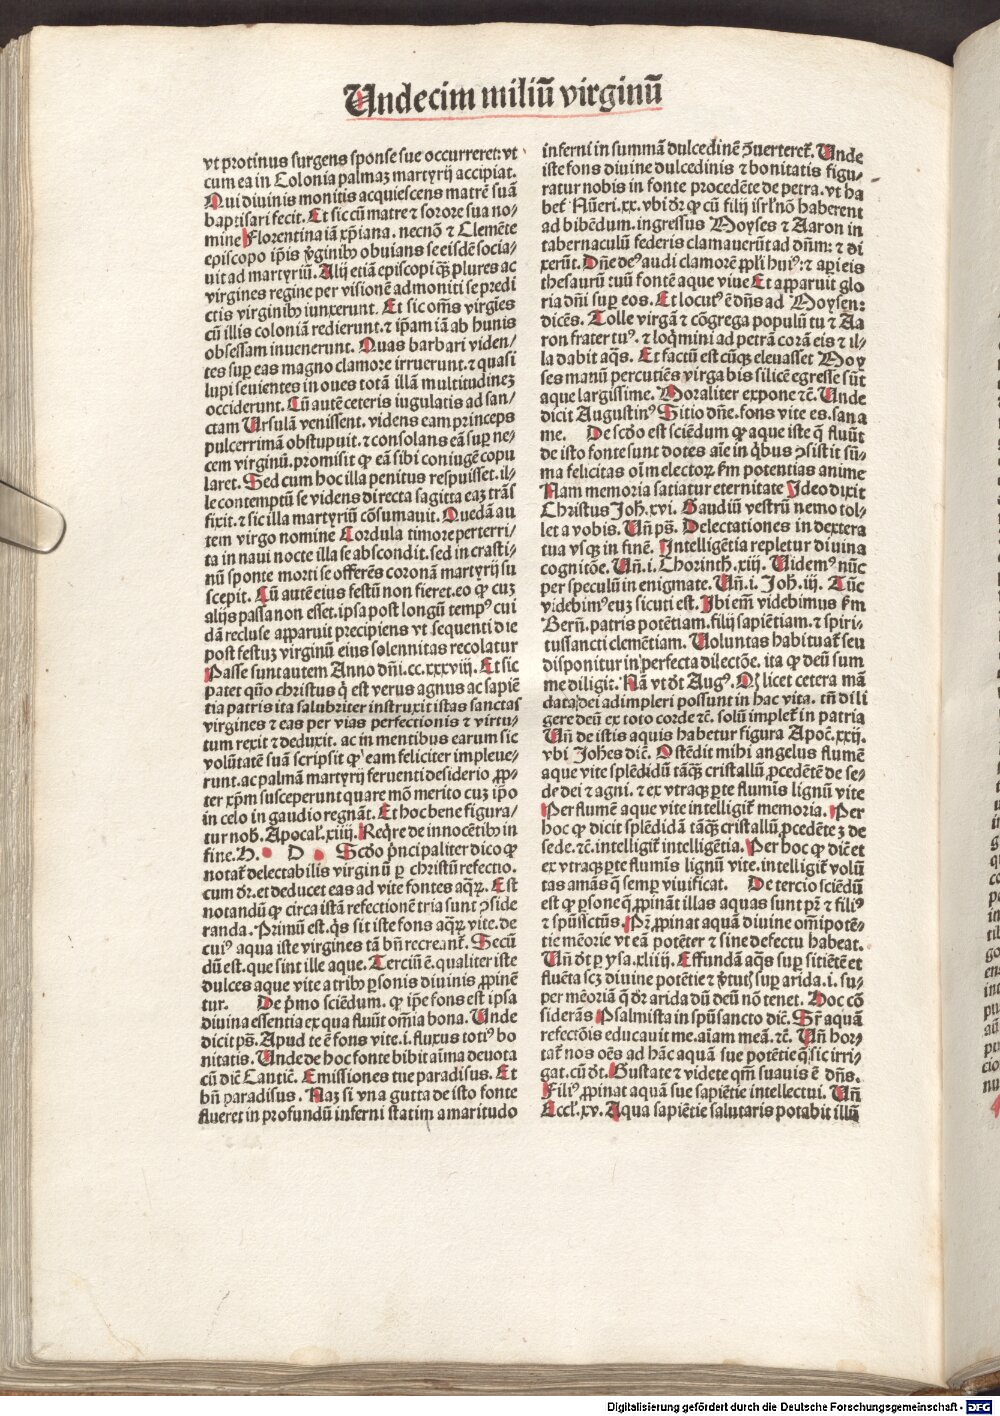 Undecim miliū virginū
vt protinus surgens sponse sue occurreret: vt
cum ea in Colonia palmaʒ martyrij accipiat.
Qui diuinis monitis acquiescens matrē suā
baptisari fecit. Et sic cū matre ⁊ sorore sua no-
mine Florentina iā xp̄iana. necnō ⁊ Clemēte
episcopo ip̄is v̓ginibꝰ obuians se eisdē socia-
uit ad martyriū. Alij etiā episcopi qꝫ plures ac
virgines regine per visionē admoniti se predi
ctis virginibꝰ iunxerunt. Et sic om̄s virgīes
cū illis coloniā redierunt. ⁊ ip̄am iā ab hunis
obsessam inuenerunt. Quas barbari viden-
tes sup̲ eas magno clamore irruerunt. ⁊ quasi
lupi seuientes in oues totā illā multitudineʒ
occiderunt. Cū autē ceteris iugulatis ad san-
ctam Ursulā venissent. videns eam princeps
pulcerrimā obstupuit. ⁊ consolans eā sup̲ ne-
cem virginū. promisit ꝙ eā sibi coniugē copu
laret. Sed cum hoc illa penitus respuisset. il-
le contemptū se videns directa sagitta eaʒ trās
fixit. ⁊ sic illa martyriū cōsumauit. Quedā au
tem virgo nomine Cordula timore perterri-
ta in naui nocte illa se abscondit. sed in crasti-
nū sponte morti se offerēs coronā martyrij su
scepit. Cū autē eius festū non fieret. eo ꝙ cuʒ
alijs passa non esset. ipsa post longū tempꝰ cui
dā recluse apparuit precipiens vt sequenti die
post festuʒ virginū eius solennitas recolatur
Passe sunt autem Anno dn̄i. cc. xxxviij. Et sic
patet quō christus q̇ est verus agnus ac sapiē
tia patris ita salubriter instruxit istas sanctas
virgines ⁊ eas per vias perfectionis ⁊ virtu-
tum rexit ⁊ deduxit. ac in mentibus earum sic
volūtatē suā scripsit ꝙ eam feliciter impleue-
runt. ac palmā martyrij feruenti desiderio ꝓp-
ter xp̄m susceperunt quare mō merito cuʒ ip̄o
in celo in gaudio regnāt. Et hoc bene figura-
tur nob̄. Apocal̓. xiiij. Req̇re de innocētibꝰ in
fine. H. D Scd̄o p̓ncipaliter dico ꝙ
notat̓ delectabilis virginū p̲ christū refectio.
cum dr̄. et deducet eas ad vite fontes aq̄ꝝ. Est
notandū ꝙ circa istā refectionē tria sunt ꝯside
randa. Primū est. q̇s sit iste fons aq̄ꝝ vite. de
cuiꝰ aqua iste virgines tā bn̄ recreant̓. Secū
dū est. que sint ille aque. Terciū ē. qualiter iste
dulces aque vite a tribꝰ p̲sonis diuinis ꝓpinē
tur. De p̓mo sciēdum. ꝙ ip̄e fons est ipsa
diuina essentia ex qua fluūt om̄ia bona. Unde
dicit ps̄. Apud te ē fons vite. i. fluxus totiꝰ bo
nitatis. Unde de hoc fonte bibit aīma deuota
cū dic̄ Cantic̄. Emissiones tue paradisus. Et
bn̄ paradisus. Naʒ si vna gutta de isto fonte
flueret in profundū inferni statim amaritudo
inferni in summā dulcedinē ꝯuerteret̓. Unde
iste fons diuine dulcedinis ⁊ bonitatis figu-
ratur nobis in fonte procedēte de petra. vt ha
bet̓ Nūeri. xx. vbi dr̄ ꝙ cū filij isrl̓ nō haberent
ad bibēdum. ingressus Moyses ⁊ Aaron in
tabernaculū federis clamauerūt ad dn̄m: ⁊ di
xerūt. Dn̄e deꝰ audi clamorē ppl̓i huiꝰ: ⁊ ap̲i eis
thesaurū tuū fontē aque viue Et apparuit glo
ria dn̄i sup̲ eos. Et locutꝰ ē dn̄s ad Moysen:
dicēs. Tolle virgā ⁊ cōgrega populū tu ⁊ Aa
ron frater tuꝰ. ⁊ loq̄mini ad petrā corā eis ⁊ il-
la dabit aq̄s. Et factū est cūqꝫ eleuasset Moy
ses manū percutiēs virga bis silicē egresse sūt
aque largissime. Moraliter expone ⁊c̄. Unde
dicit Augustinꝰ Sitio dn̄e. fons vite es. sana
me. De scd̄o est sciēdum ꝙ aque iste q̄ fluūt
de isto fonte sunt dotes aīe in q̇bus ꝯsistit sū-
ma felicitas oīm electoꝝ f̓m potentias anime
Nam memoria satiatur eternitate Ideo dixit
Christus Joh̄. xvi. Gaudiū vestrū nemo tol-
let a vobis. Un̄ ps̄. Delectationes in dextera
tua vsqꝫ in finē. Intelligētia repletur diuina
cognitōe. Un̄. i. Chorinth̄. xiij. Uidemꝰ nūc
per speculū in enigmate. Un̄. i. Joh̄. iij. Tūc
videbimꝰ euʒ sicuti est. Ibi em̄ videbimus f̓m
Bern̄. patris potētiam. filij sapiētiam. ⁊ spiri-
tussancti clemētiam. Uoluntas habituat̓ seu
disponitur in perfecta dilectōe. ita ꝙ deū sum
me diligit. Nā vt dr̄t Augꝰ. Qꝫ licet cetera mā
data dei adimpleri possunt in hac vita. tn̄ dili
gere deū ex toto corde ⁊c̄. solū implet̓ in patria
Un̄ de istis aquis habetur figura Apoc̄. xxij.
vbi Joh̄es dic̄. Ostēdit mihi angelus flumē
aque vite splēdidū tāqꝫ cristallū ꝓcedētē de se-
de dei ⁊ agni. ⁊ ex vtraqꝫ p̲te flumīs lignū vite
Per flumē aque vite intelligit̓ memoria. Per
hoc ꝙ dicit splēdidā tāqꝫ cristallū ꝓcedēteʒ de
sede. ⁊c̄. intelligit̓ intelligētia. Per hoc ꝙ dic̄ et
ex vtraqꝫ p̲te flumīs lignū vite. intelligit̓ volū
tas amās q̄ semp̲ viuificat. De tercio sciēdū
est ꝙ p̲sone q̄ ꝓpināt illas aquas sunt pr̄ ⁊ filiꝰ
⁊ sp̄ūssctūs. Pr̄ ꝓpinat aquā diuine om̄ipotē-
tie mēorie vt eā potēter ⁊ sine defectu habeat.
Un̄ dr̄t p̲ ysa. xliiij. Effundā aq̄s sup̲ sitiētē et
fluēta scʒ diuine potētie ⁊ v̓tut̓ sup̲ arida. i. su-
per mēoriā q̄ dr̄ arida dū deū nō tenet. Hoc cō
siderās Psalmista in sp̄ū sancto dic̄. Sr̄ aquā
refectōis educauit me. aīam meā. ⁊c̄. Un̄ hor-
tat̓ nos oēs ad hāc aquā sue potētie q̄ sic irri-
gat. cū dr̄t. Gustate ⁊ videte qm̄ suauis ē dn̄s.
Filiꝰ ꝓpinat aquā sue sapiētie intellectui. Un̄
Eccl̓. xv. Aqua sapiētie salutaris potabit illū
Digitalisierung gefördert durch die Deutsche Forschungsgemeinschaft - DFG